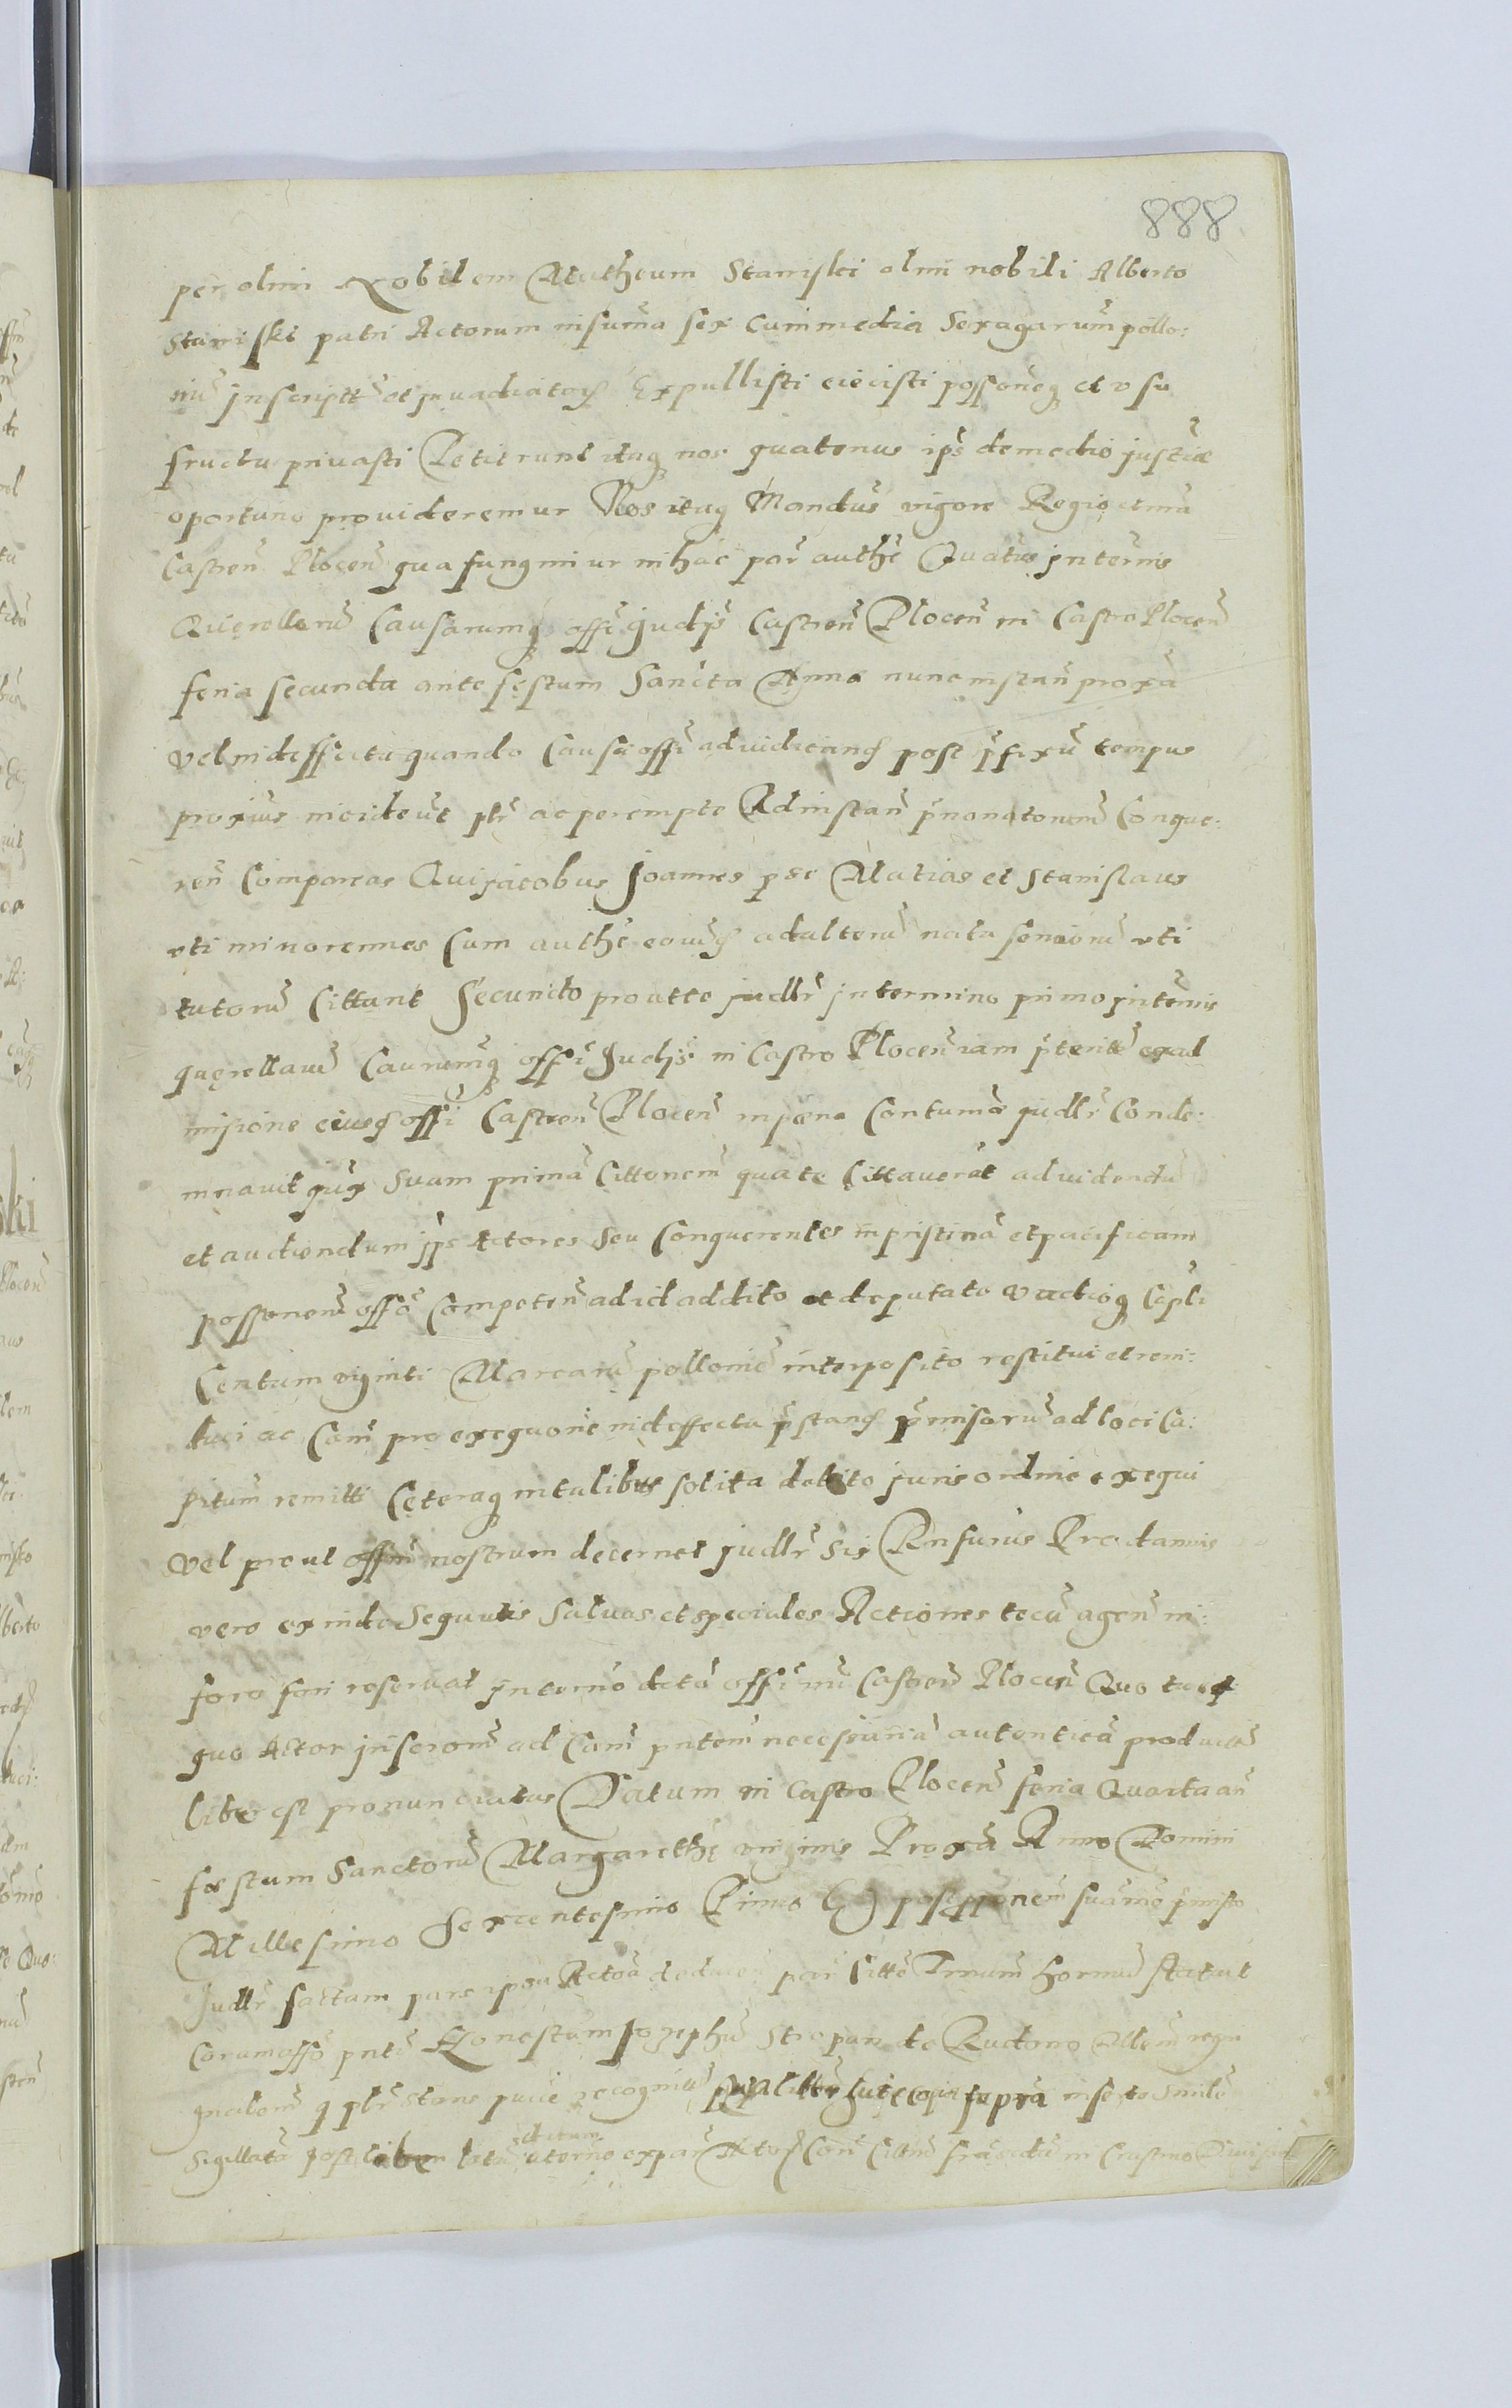 888
per olim Nobilem Matheum Staniski olim nobili Alberto
Staniski patri Actorum in suma sex cum media Sexagarum pollo:
niu inscriptu et invadiatos Expullisti eiecisti possoneq et vsu
fructu privasti Petierunt itaq nos quatenus ips de medio justitiæ
oportuno provideremur Nos itaq Mandus vigore Regio et nra
Castren Plocen qua fungimur in hac par authe Quatus in ternis
Querellaru Causarumq offi Judys Castren Plocen in Castro Plocen
feria secunda ante festum Sancta Anna nunc instan proxa
vel in deffectu quando Causa offi adiudicand post pfixu tempus
proxius incideut ptr ac perempte Ad instan pnonatorum Conque:
ren Compareas Qui Jacobus Joannes per se Matias et Stanislaus
vti minorennes Cum authe eorund adultoru natu senioru vti
tutoru Cittant Secundo pro vtte judlr in termino primo in ternis
querellaru Caurumq offi Judys in Castro Plocen iam pterite ex ad
misione eiusd offi Castren Plocen in pæna Contumac judlr Conde:
mnavit jux Suam prima Cittonem qua te Cittaverat ad videndu
et audiendum ips Actores seu Conquerentes in pristina et pacificam
possonem offo Competen ad id addito et deputato vadioq Cepli
Centum viginti Marcaru pollonic interposito restitui et rein:
duci ac Cam pro exequone in deffectu pstand pmisoru ad loci Ca:
pitum remitti Ceteraq in talibus solita debito juris ordine exequi
vel prout offm nostrum decernet judlr Sis Rnsurus Pro damnis
vero exinde Sequutis Salvas et speciales Actiones tecu agen in:
foro fori reservat in termo dctu offi nri Castren Plocen Quo tu et
quo Actor inscrom ad Cam pntem necesaria autentica producen
liber est pronunciatus Datum in Castro Plocen feria Quarta an
festum Sanctoru Margarethe virginis Proxa Anno Domini
Millesimo Sexcentesimo Primo Et post pponem suamo pmisso
Judlr factam pars ipsa Actoa deducen par Citte Trnum hornu statuit
Coram offo pnti Honestum Jozephu Stropan de Rudono Mlem regni
gnalem q plr stans pucie recognivit qualittras huic copia supra inserto Simile
Sigillata post liben lata dictum et termo expar Actor Con Cittu in Crastino Division